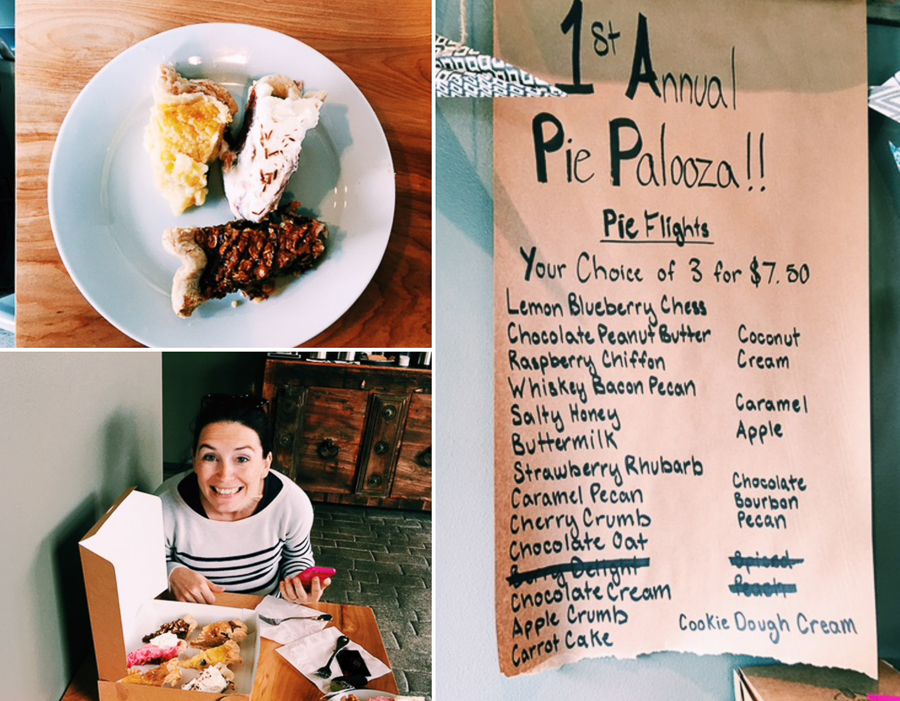 1st Annual
Pie Palooza!!
Pie Flights
Your Choice of 3 for $7.50
Lemon Blueberry Chess
Chocolate Peanut Butter
Raspberry Chiffon
Whiskey Bacon Pecan
Salty Honey
Buttermilk
Strawberry Rhubarb
Caramel Pecan
Cherry Crumb
Chocolate Oat
Berry Delight
Chocolate Cream
Apple Crumb
Carrot Cake
Coconut
Cream
Caramel
Apple
Chocolate
Bourbon
Pecan
Spiced
Peach
Cookie Dough Cream